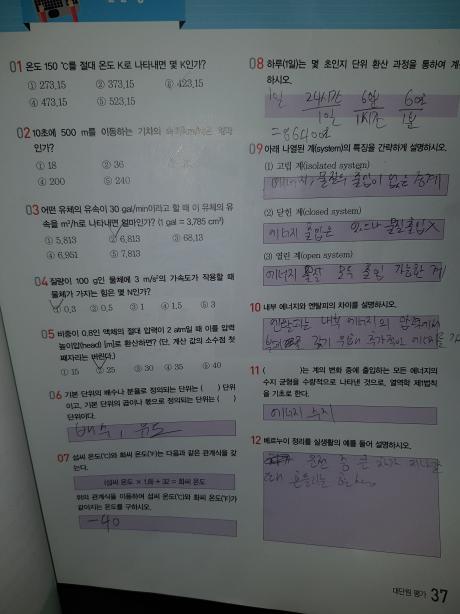 01 온도 150 ℃를 절대 온도 K로 나타내면 몇 K인가?
① 273.15 ② 373.15 ③ 423.15
④ 473.15 ⑤ 523.15
02 10초에 500 m를 이동하는 기차의
인가?
① 18 ② 36
④ 200 ⑤ 240
03 어떤 유체의 유속이 30 gal/min이라고 할 때 이 유체의 유
속을 m³/h로 나타내면 얼마인가? (1 gal = 3,785 cm³)
① 5,813 ② 6,813 ③ 68.13
④ 6,951 ⑤ 7,813
04 질량이 100 g인 물체에 3 m/s²의 가속도가 작용할 때
물체가 가지는 힘은 몇 N인가?
① 0.3 ② 0.5 ③ 1 ④ 1.5 ⑤ 3
05 비중이 0.8인 액체의 절대 압력이 2 atm일 때 이를 압력
높이압(head) [m]로 환산하면? (단, 계산 값의 소수점 첫
째자리는 버린다.)
① 15 ② 25 ③ 30 ④ 35 ⑤ 40
06 기본 단위의 배수나 분율로 정의되는 단위는 ( ) 단위
이고, 기본 단위의 곱이나 몫으로 정의되는 단위는 ( )
단위이다.
배수, 유도
07 섭씨 온도(℃)와 화씨 온도(℉)는 다음과 같은 관계식을 갖
는다.
(섭씨 온도 × 1.8) + 32 = 화씨 온도
위의 관계식을 이용하여 섭씨 온도(℃)와 화씨 온도(℉)가
같아지는 온도를 구하시오.
-40
08 하루(1일)는 몇 초인지 단위 환산 과정을 통하여 계
하시오.
1일 24시간 60
1일 1시간 1분
09 아래 나열된 계(system)의 특징을 간략하게 설명하시오.
(1) 고립 계(isolated system)
에너지, 물질의 출입이 없는 경계
(2) 닫힌 계(closed system)
에너지 출입은 있으나 물질출입 X
(3) 열린 계(open system)
에너지 물질 모두 출입 가능한 계
10 내부 에너지와 엔탈피의 차이를 설명하시오.
엔탈피는 내부 에너지의
갖기 위해 추가적인 에너지를
11 ( )는 계의 변화 중에 출입하는 모든 에너지의
수지 균형을 수량적으로 나타낸 것으로, 열역학 제1법칙
을 기초로 한다.
에너지 수지
12 베르누이 정리를 실생활의 예를 들어 설명하시오.
운전 중 큰 차가 지나갈
때 흔들리는
대단원 평가 37